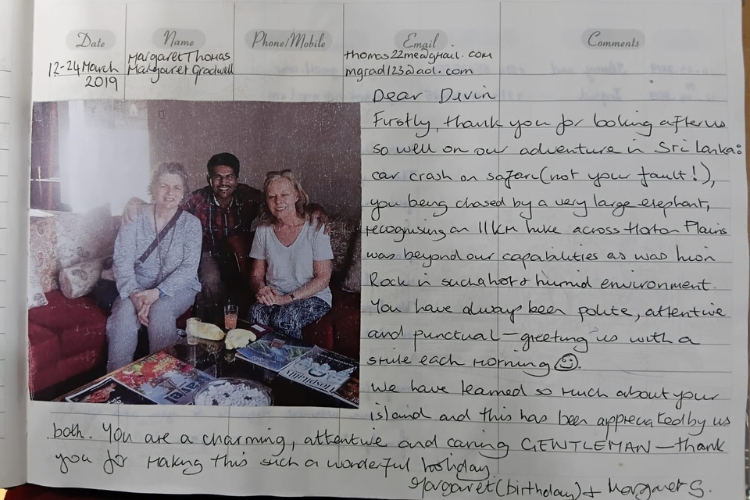 Date Name Phone/Mobile Email Comments
12-24 March 2019
Margaret Thomas
Margaret Gradwell
thomas22me@gmail.com
mgrad123@aol.com
Dear Devin
Firstly, thank you for looking after us
so well on our adventure in Sri Lanka:
car crash on safari (not your fault!),
you being chased by a very large elephant,
recognising an 11km hike across Horton Plains
was beyond our capabilities as was Lion
Rock in such a hot & humid environment.
You have always been polite, attentive
and punctual – greeting us with a
smile each morning ☺.
We have learned so much about your
island and this has been appreciated by us
both. You are a charming, attentive and caring GENTLEMAN – thank
you for making this such a wonderful holiday
Margaret (birthday) + Margaret G.